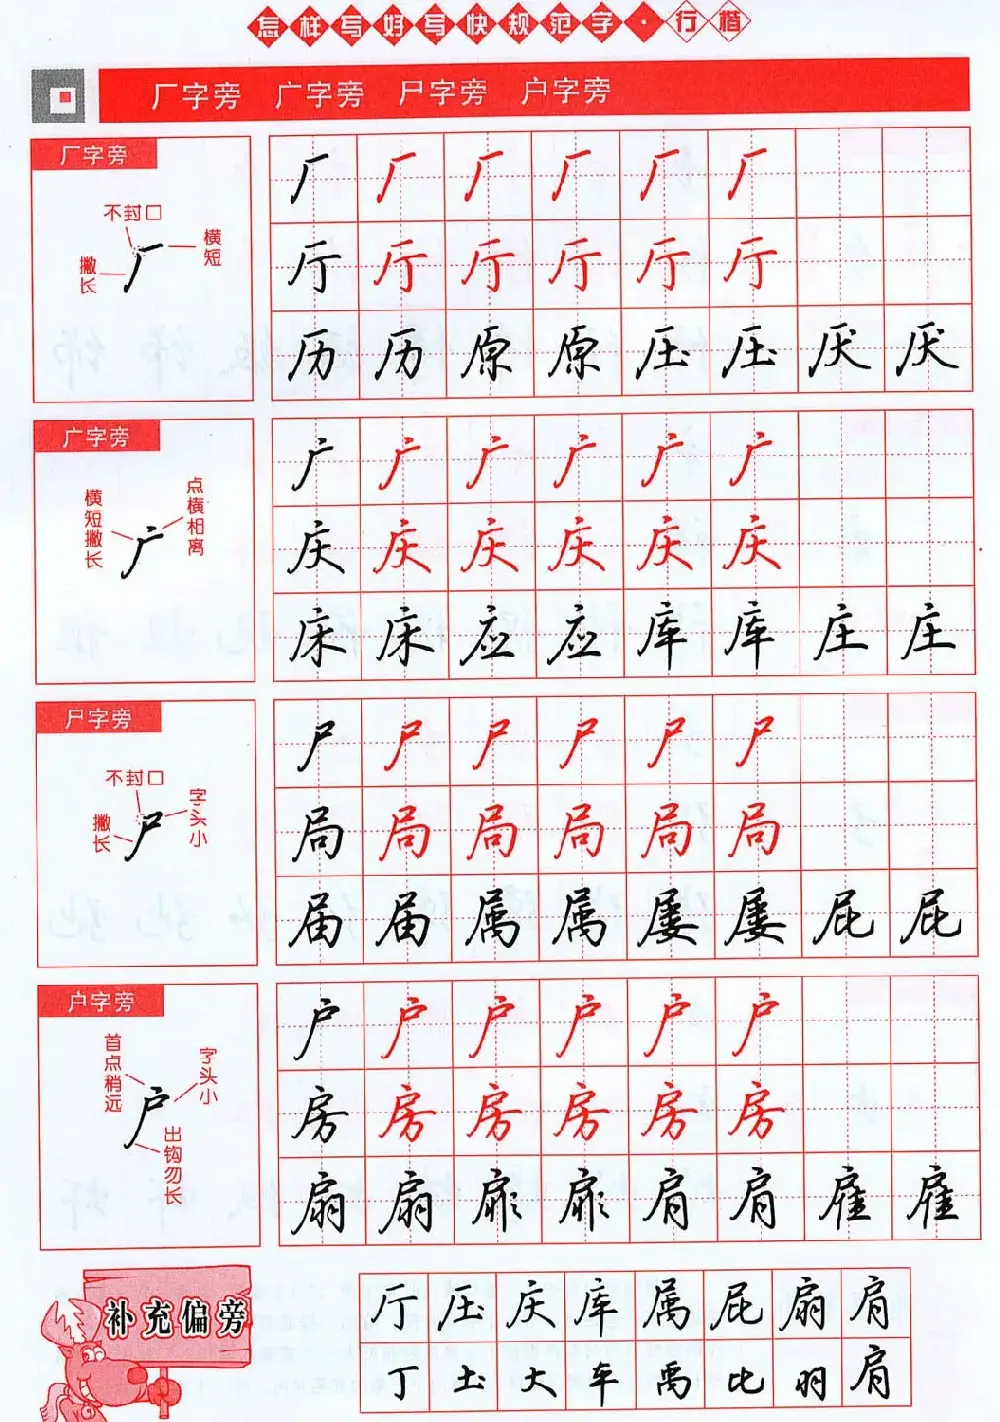 怎样写好写快规范字·行楷
厂字旁 广字旁 尸字旁 户字旁
厂字旁
不封口
横短
撇长
厂 厂 厂 厂 厂 厂
厅 厅 厅 厅 厅 厅
历 历 原 原 压 压 厌 厌
广字旁
点横相离
横短撇长
广 广 广 广 广 广
庆 庆 庆 庆 庆 庆
床 床 应 应 库 库 庄 庄
尸字旁
不封口
字头小
撇长
尸 尸 尸 尸 尸 尸
局 局 局 局 局 局
届 届 属 属 屡 屡 屁 屁
户字旁
首点稍远
字头小
出钩勿长
户 户 户 户 户 户
房 房 房 房 房 房
扇 扇 扉 扉 肩 肩 雇 雇
补充偏旁
厅 压 庆 库 属 屁 扇 肩
丁 土 大 车 禹 比 羽 肩